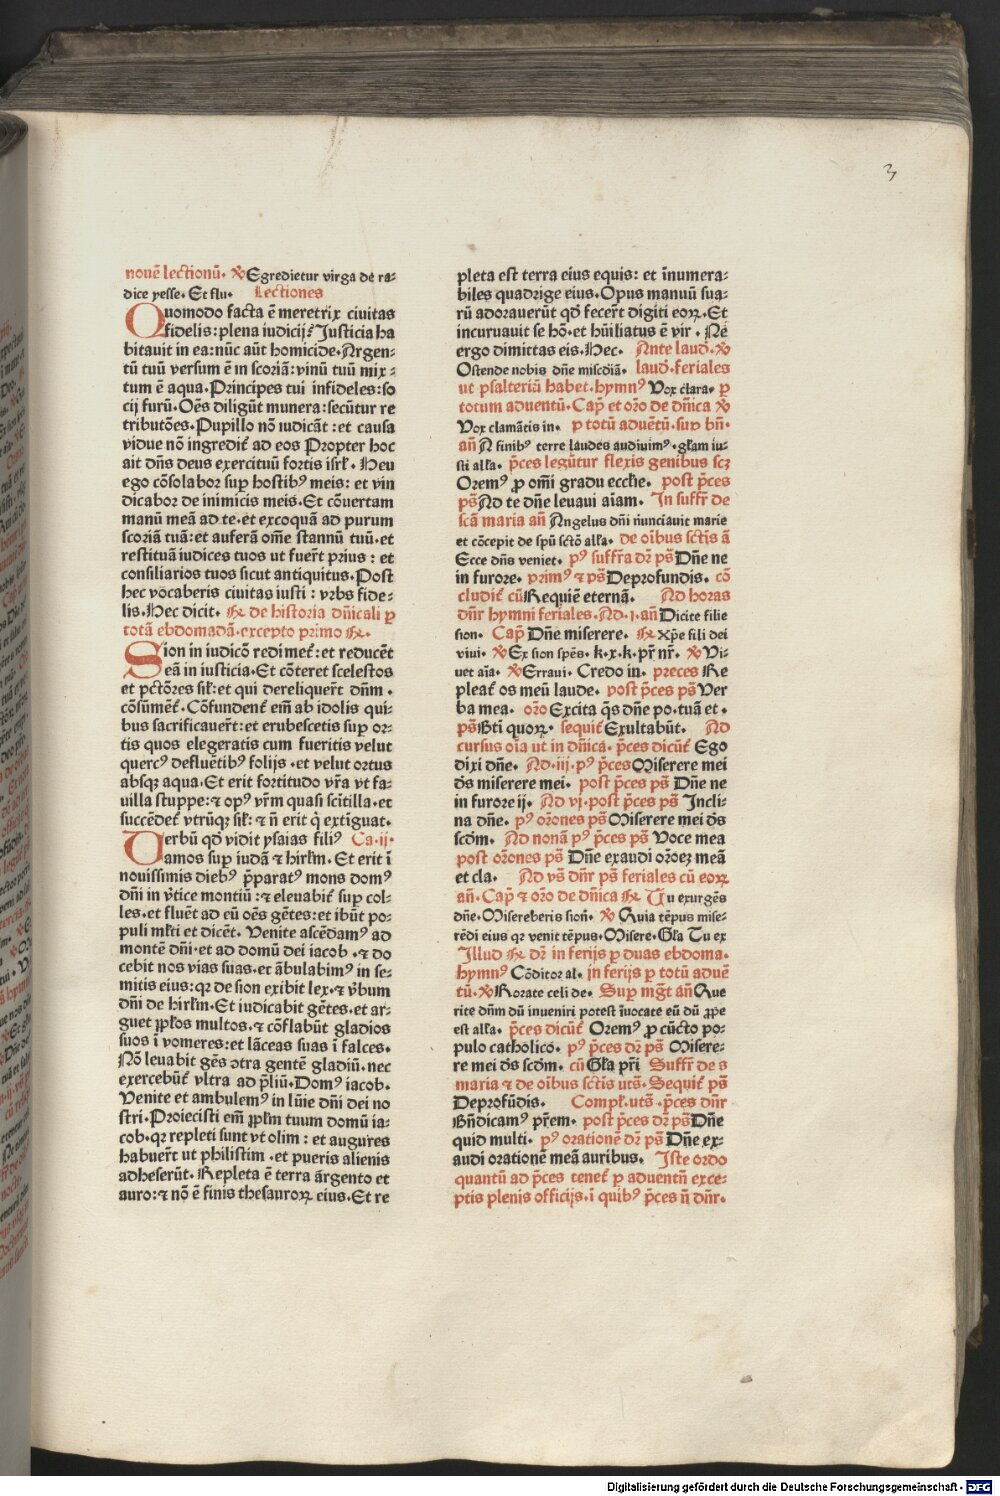 3
nouē lectionū. ꝟ Egredietur virga de ra⸗
dice yesse. Et flu. Lectiones
Quomodo facta ē meretrix ciuitas
fidelis: plena iudicij: Iusticia ha
bitauit in ea: nūc aūt homicide. Argen⸗
tū tuū versum ē in scoriā: vinū tuū mix⸗
tum ē aqua. Principes tui infideles: so
cij furū. Oēs diligūt munera: secūtur re
tributōes. Pupillo nō iudicāt: et causa
vidue nō ingredit̄ ad eos Propter hoc
ait dn̄s deus exercituū fortis isrl̄. Heu
ego cōsolabor sup̄ hostibꝰ meis: et vin
dicabor de inimicis meis. Et cōuertam
manū meā ad te. et excoquā ad purum
scoriā tuā: et auferā om̄e stannū tuū. et
restituā iudices tuos ut fuer̄t prius: et
consiliarios tuos sicut antiquitus. Post
hec vōcaberis ciuitas iusti: vrbs fide⸗
lis. Hec dicit. ℟. de historia dn̄icali ꝑ
totā ebdomadā. excepto primo ℟.
Sion in iudicō redimet̄: et reducēt
eā in iusticia. Et cōteret scelestos
et pct̄ōres sil̄: et qui dereliquer̄t dn̄m.
cōsūmēt̄. Cōfundent̄ em̄ ab idolis qui⸗
bus sacrificauer̄t: et erubescetis sup̄ or⸗
tis quos elegeratis cum fueritis velut
quercꝰ defluētibꝰ folijs. et velut ortus
absqꝫ aqua. Et erit fortitudo vr̄a vt fa⸗
uilla stuppe: ⁊ opꝰ vr̄m quasi scītilla. et
succēdet̄ vtrūqꝫ sil̄: ⁊ n̄ erit q̄ extīguat.
Verbū qd̄ vidit ysaias filiꝰ Ca. ij.
amos sup̄ iudā ⁊ hirl̄m. Et erit ī
nouissimis diebꝰ p̄paratꝰ mons domꝰ
dn̄i in v̄tice montiū: ⁊ eleuabit̄ sup̄ col⸗
les. et fluēt ad eū oēs gētes: et ibūt po⸗
puli ml̄ti et dicēt. Venite ascēdamꝰ ad
montē dn̄i. et ad domū dei iacob. ⁊ do
cebit nos vias suas. et ābulabimꝰ in se⸗
mitis eius: qꝛ de sion exibit lex. ⁊ v̄bum
dn̄i de hirl̄m. Et iudicabit gētes. et ar⸗
guet ppl̄os multos. ⁊ cōflabūt gladios
suos ī vomeres: et lāceas suas ī falces.
Nō leuabit gēs ↄtra gentē gladiū. nec
exercebūt̄ vltra ad p̄liū. Domꝰ iacob.
Venite et ambulemꝰ in lūie dn̄i dei no
stri. Proiecisti em̄ ppl̄m tuum domū ia⸗
cob. qꝛ repleti sunt vt olim: et augures
habuer̄t ut philistim. et pueris alienis
adheserūt. Repleta ē terra ārgento et
auro: ⁊ nō ē finis thesauroꝝ eius. Et re
pleta est terra eius equis: et īnumera⸗
biles quadrige eius. Opus manuū sua⸗
rū adorauerūt qd̄ fecer̄t digiti eoꝝ. Et
incuruauit se hō. et hūiliatus ē vir. Ne
ergo dimittas eis. Hec. Ante laud̄. ꝟ
Ostende nobis dn̄e miscd̄iā. laud̄. feriales
ut psalteriū habet. hymnꝰ Vox clara. ꝑ
totum aduentū. Cap̄ et or̄o de dn̄ica ꝟ
Vox clamātis in. ꝑ totū aduētū. sup̄ bn̄.
an̄ A finibꝰ terre laudes audiuimꝰ. gl̄am iu⸗
sti all̄a. p̄ces legūtur flexis genibus scꝫ
Oremꝰ ꝓ om̄i gradu eccl̄ie. post p̄ces
ps̄ Ad te dn̄e leuaui aīam. In suffr̄ de
scā maria an̄ Angelus dn̄i nunciauit marie
et cōcepit de spū sctō all̄a. de oībus sctīs ā
Ecce dn̄s veniet. pꝰ suffr̄a dr̄ ps̄ Dn̄e ne
in furore. primꝰ ⁊ ps̄ Deprofundis. cō
cludit̄ cū Requiē eternā. Ad horas
dn̄r hymni feriales. Ad. i. an̄ Dicite filie
sion. Cap̄ Dn̄e miserere. ℟ Xp̄e fili dei
viui. ꝟ Ex sion spēs. k. x. k. pr̄ nr̄. ꝟ Vi⸗
uet aīa. ꝟ Erraui. Credo in. preces Re
pleat̄ os meū laude. post p̄ces ps̄ Ver
ba mea. or̄o Excita q̄s dn̄e po. tuā et.
ps̄ Bt̄i quoꝝ. sequit̄ Exultabūt. Ad
cursus oīa ut in dn̄ica. p̄ces dicūt̄ Ego
dixi dn̄e. Ad. iij. pꝰ p̄ces Miserere mei
d̄s miserere mei. post p̄ces ps̄ Dn̄e ne
in furore ij. Ad vj. post p̄ces ps̄ Incli⸗
na dn̄e. pꝰ or̄ones ps̄ Miserere mei d̄s
scd̄m. Ad nonā pꝰ p̄ces ps̄ Voce mea
post or̄ones ps̄ Dn̄e exaudi or̄oeꝫ meā
et cla. Ad vs̄ dn̄r ps̄ feriales cū eoꝝ
an̄. Cap̄ ⁊ or̄o de dn̄ica ℟ Tu exurgēs
dn̄e. Misereberis sion̄. ꝟ Quia tēpus mise⸗
rēdi eius qꝛ venit tēpus. Misere. Gl̄a Tu ex
Illud ℟ dr̄ in ferijs ꝑ duas ebdoma.
hymnꝰ Cōditor al. in ferijs ꝑ totū aduē
tū. ꝟ Rorate celi de. Sup̄ mgt̄ an̄ Que
rite dn̄m dū inueniri potest īuocate eū dū ꝓpe
est all̄a. p̄ces dicūt̄ Oremꝰ ꝓ cūcto po⸗
pulo catholicō. pꝰ p̄ces dr̄ ps̄ Misere⸗
re mei d̄s scd̄m. cū Gl̄a pr̄i Suffr̄ de s
maria ⁊ de oībus sctīs uts̄. Sequit̄ ps̄
Deprofūdis. Compl̄. uts̄. p̄ces dn̄r
Bn̄dicamꝰ pr̄em. post p̄ces dr̄ ps̄ Dn̄e
quid multi. pꝰ orationē dr̄ ps̄ Dn̄e ex⸗
audi orationē meā auribus. Iste ordo
quantū ad p̄ces tenet̄ ꝑ aduentū exce⸗
ptis plenis officijs. ī quibꝰ p̄ces n̄ dn̄r.
Digitalisierung gefördert durch die Deutsche Forschungsgemeinschaft - DFG